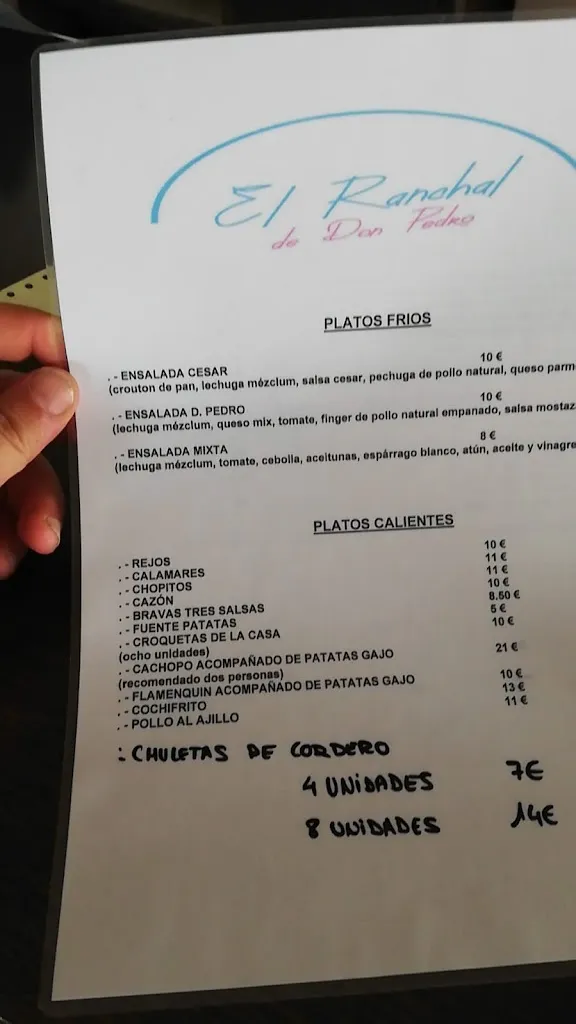 El Ranchal
de Don Pedro
PLATOS FRIOS
. - ENSALADA CESAR 10 €
(crouton de pan, lechuga mézclum, salsa cesar, pechuga de pollo natural, queso parm
. - ENSALADA D. PEDRO 10 €
(lechuga mézclum, queso mix, tomate, finger de pollo natural empanado, salsa mostaz
. - ENSALADA MIXTA 8 €
(lechuga mézclum, tomate, cebolla, aceitunas, espárrago blanco, atún, aceite y vinagre
PLATOS CALIENTES
. - REJOS 10 €
. - CALAMARES 11 €
. - CHOPITOS 11 €
. - CAZÓN 10 €
. - BRAVAS TRES SALSAS 8.50 €
. - FUENTE PATATAS 5 €
. - CROQUETAS DE LA CASA 10 €
(ocho unidades)
. - CACHOPO ACOMPAÑADO DE PATATAS GAJO 21 €
(recomendado dos personas)
. - FLAMENQUIN ACOMPAÑADO DE PATATAS GAJO 10 €
. - COCHIFRITO 13 €
. - POLLO AL AJILLO 11 €
: CHULETAS DE CORDERO
4 UNIDADES 7€
8 UNIDADES 14€